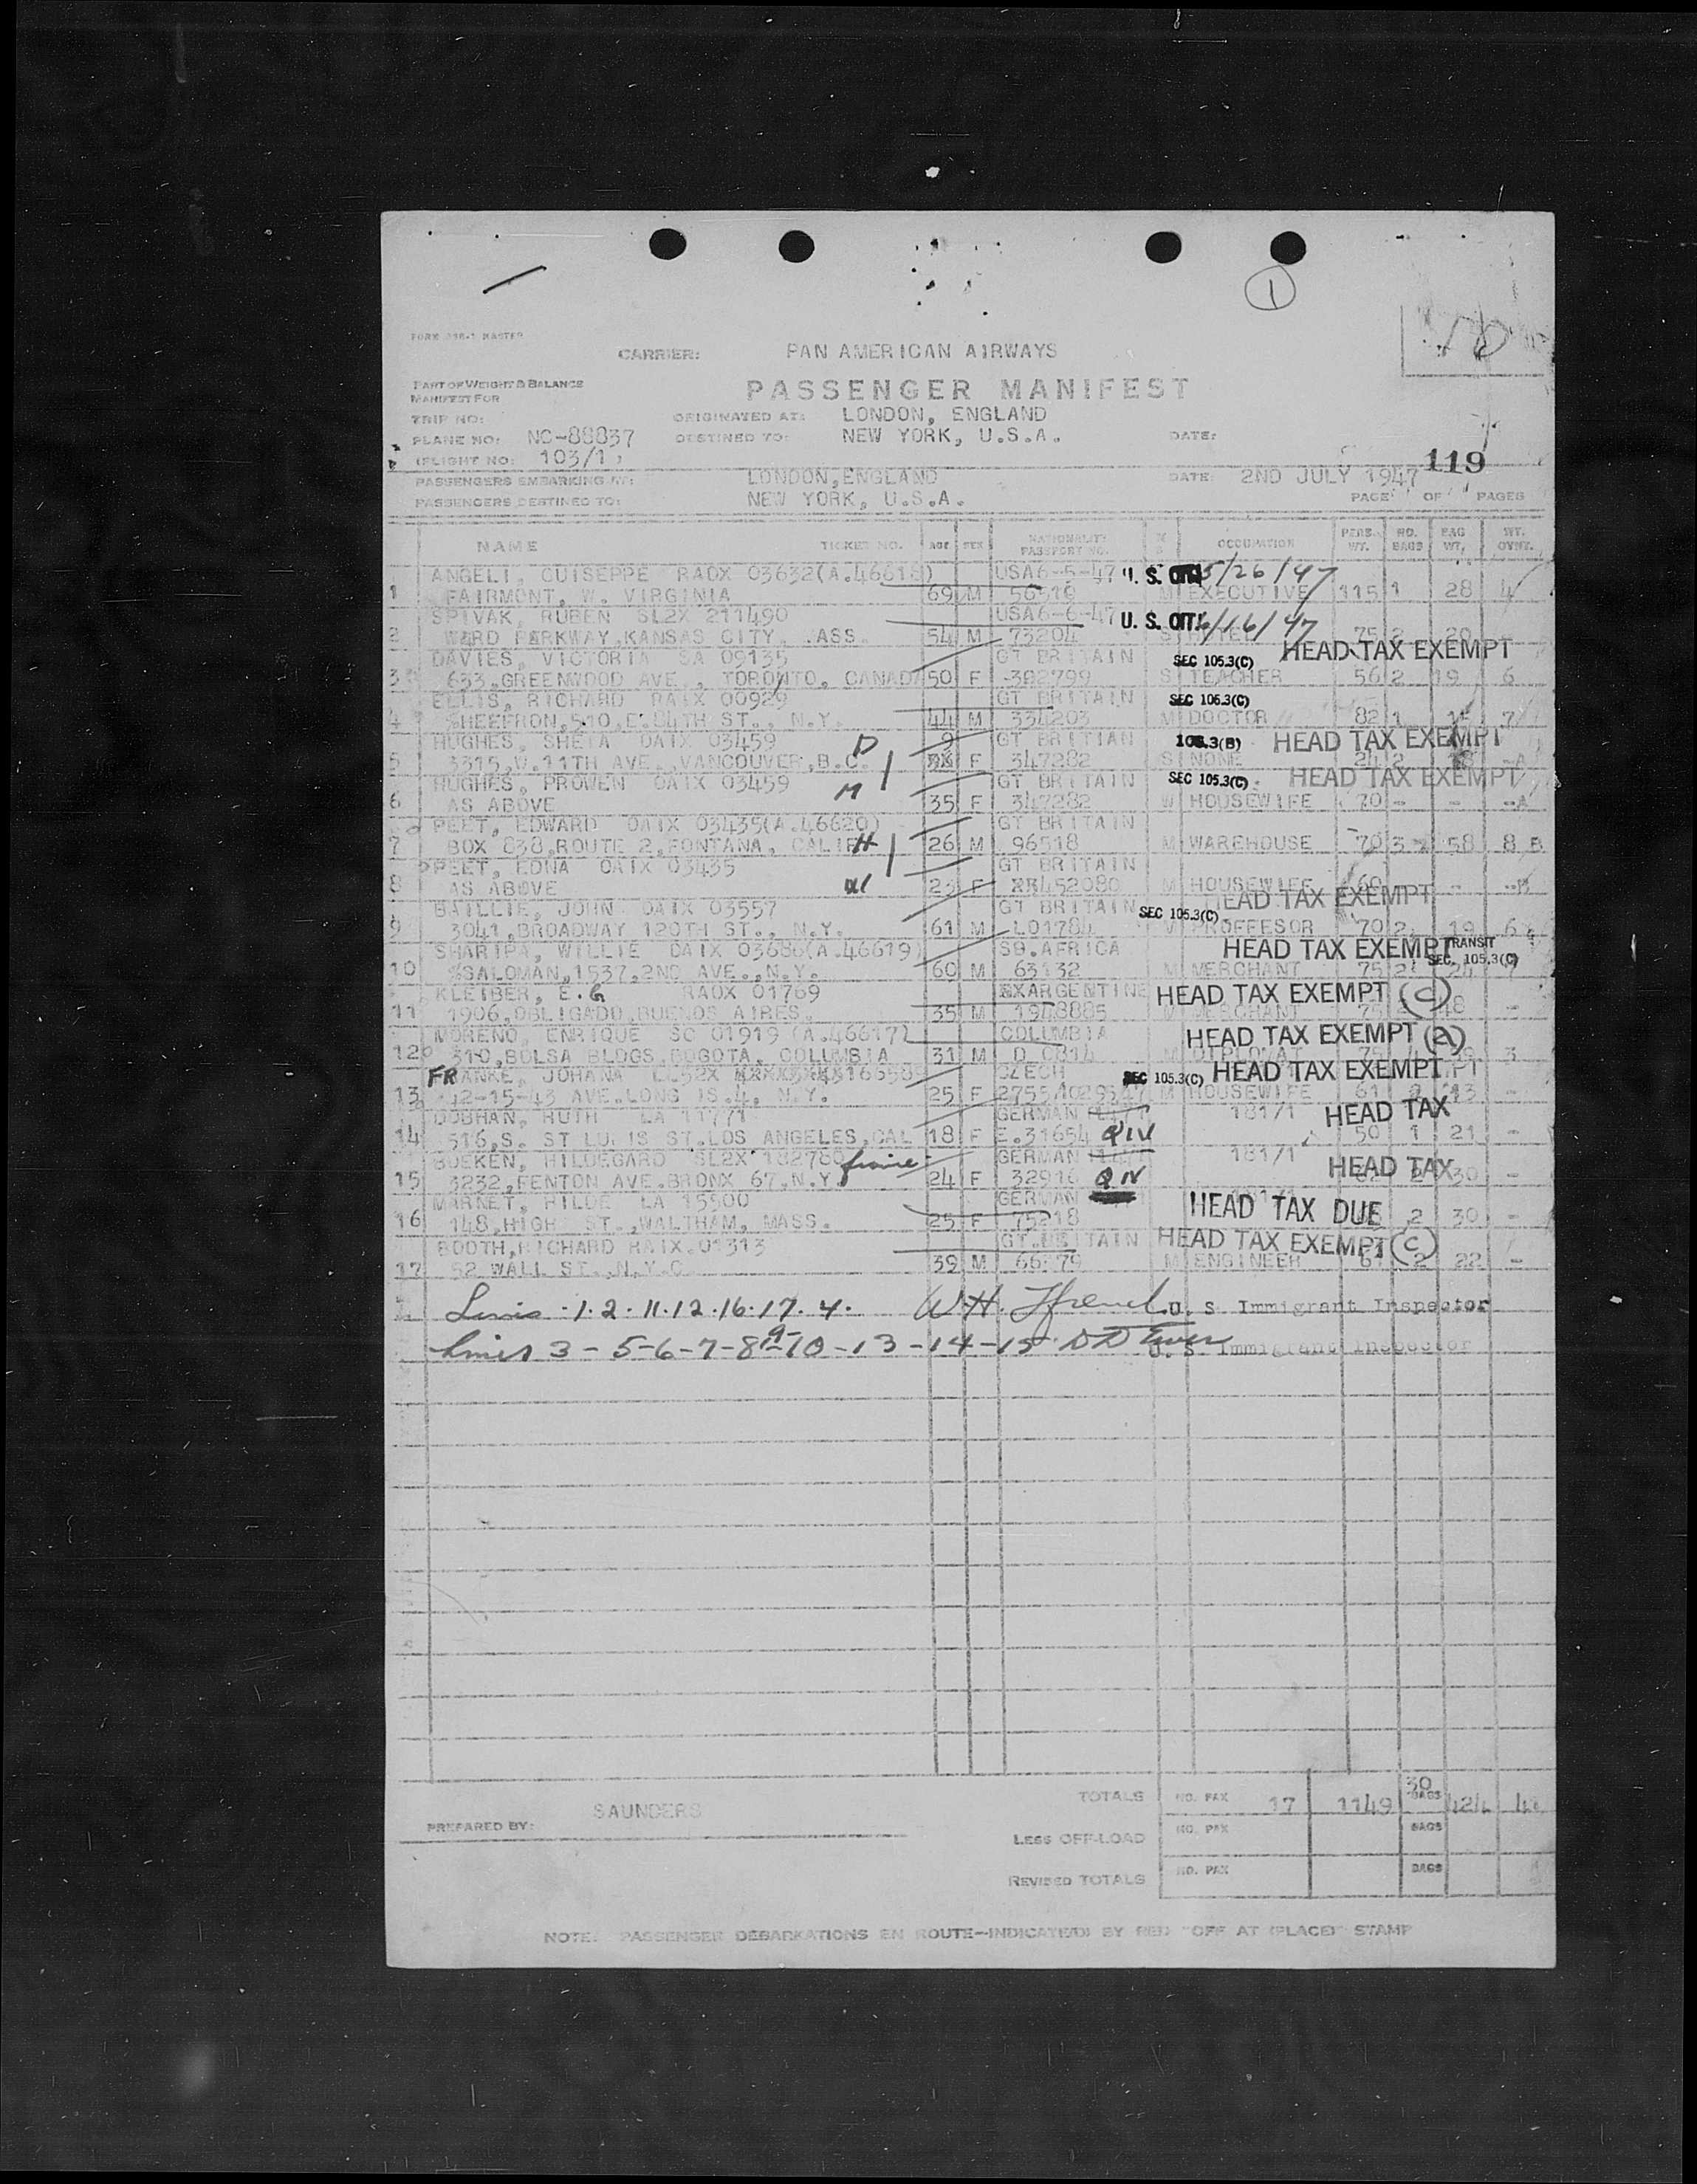 1
FORM
CARRIER: PAN AMERICAN AIRWAYS
PART OF WEIGHT & BALANCE
MANIFEST FOR
PASSENGER MANIFEST
TRIP NO: ORIGINATED AT: LONDON, ENGLAND
PLANE NO: NC-88837 DESTINED TO: NEW YORK, U.S.A. DATE:
FLIGHT NO: 103/1
119
PASSENGERS EMBARKING AT: LONDON,ENGLAND DATE: 2ND JULY 1947
PASSENGERS DESTINED TO: NEW YORK, U.S.A. PAGE OF PAGES
NAME TICKET NO. AGE SEX NATIONALITY PASSPORT NO. M S OCCUPATION PERS. WT. NO. BAGS BAG WT. WT. OVWT.
ANGELI, GUISEPPE RAOX 03632(A.46618) USA6-5-47 U. S. CIT. 5/26/47
1 FAIRMONT, W. VIRGINIA 69 M M EXECUTIVE 115 1 28 4
SPIVAK, RUBEN SL2X 211490 USA6-6-47 U. S. CIT. 6/16/47
2 WARD PARKWAY,KANSAS CITY, 54 M 73204 S 75 2
DAVIES, VICTORIA SA 09135 GT BRITAIN SEC 105.3(C) HEAD TAX EXEMPT
3 633,GREENWOOD AVE., TORONTO, CANAD 50 F 382799 S TEACHER 56 2 19 6
ELLIS, RICHARD RAIX 00929 GT BRITAIN SEC 105.3(C)
4 %HEFFRON,510,E.84TH ST., N.Y. 44 M 334203 M DOCTOR 82 1 7
HUGHES, SHEIA OAIX 03459 D 9 GT BRITIAN 105.3(B) HEAD TAX EXEMPT
5 3315,W.11TH AVE.,VANCOUVER,B.C. F 347282 S NONE 24 2 -A
HUGHES, PROWEN OAIX 03459 M GT BRITAIN SEC 105.3(C) HEAD TAX EXEMPT
6 AS ABOVE 35 F 347282 W HOUSEWIFE 70 - - --A
PEET, EDWARD OAIX 03435(A.46620) GT BRITAIN
7 BOX 838,ROUTE 2,FONTANA, CALIF H 26 M 96518 M WAREHOUSE 70 3 58 8 B
PEET, EDNA OAIX 03435 GT BRITAIN
8 AS ABOVE 23 F 452080 M HOUSEWIFE 60 - --B
BAILLIE, JOHN OAIX 03557 GT BRITAIN SEC 105.3(C) HEAD TAX EXEMPT
9 3041,BROADWAY 120TH ST., N.Y. 61 M L01784 M PROFFESOR 70 2 19 6
SHARIPA, WILLIE OAIX 03686(A.46619) S0.AFRICA HEAD TAX EXEMPT TRANSIT SEC. 105.3(C)
10 %SALOMAN,1537,2ND AVE.,N.Y. 60 M 63132 M MERCHANT 75 2 24
KLEIBER, E.G RAOX 01769 ARGENTINE HEAD TAX EXEMPT (C)
11 1906,OBLIGADO,BUENOS AIRES. 35 M 1948885 M MERCHANT 75 48 -
MORENO, ENRIQUE SO 01919 (A.46617) COLUMBIA HEAD TAX EXEMPT (a)
12 310,BOLSA BLDGS,BOGOTA, COLUMBIA 31 M D 0814 M DIPLOMAT 75 3
FRANKE, JOHANA CZECH SEC 105.3(C) HEAD TAX EXEMPT
13 42-15-43 AVE.LONG IS.4, N.Y. 25 F M HOUSEWIFE 61 2 13 -
DOBHAN, RUTH LA 11771 GERMAN 18171 HEAD TAX
14 516,S. ST LOUIS ST.LOS ANGELES,CAL 18 F E.31654 QIV 50 1 21 -
BOEKEN, HILDEGARD SL2X 182760 GERMAN 18171 HEAD TAX
15 3232,FENTON AVE.BRONX 67,N.Y. 24 F 32916 QIV 2 30 -
MARNET, HILDE LA 15500 GERMAN HEAD TAX DUE
16 148,HIGH ST.,WALTHAM, MASS. 25 F 75218 2 30 -
BOOTH,RICHARD RAIX.01313 GT.BRITAIN HEAD TAX EXEMPT (C)
17 52 WALL ST.,N.Y.C. 39 M M ENGINEER 61 2 22 -
1.2.11.12.16.17.4. W.H. U. S. Immigrant Inspector
Lines 3-5-6-7-8-9-10-13-14-15 U. S. Immigrant Inspector
TOTALS NO. PAX 17 1149 30 BAGS
PREPARED BY: SAUNDERS
LESS OFF-LOAD NO. PAX BAGS
REVISED TOTALS NO. PAX BAGS
NOTE: PASSENGER DEBARKATIONS EN ROUTE—INDICATED BY RED "OFF AT (PLACE)" STAMP